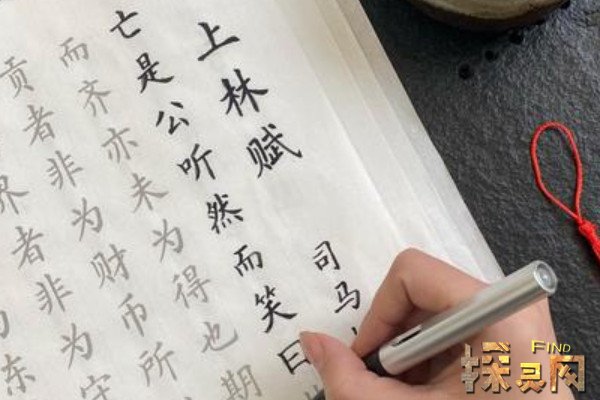 上林赋 司马
亡是公听然而笑曰
而齐亦未为得也期
贡者非为财币所
界者非为守
东
FIND
探灵网